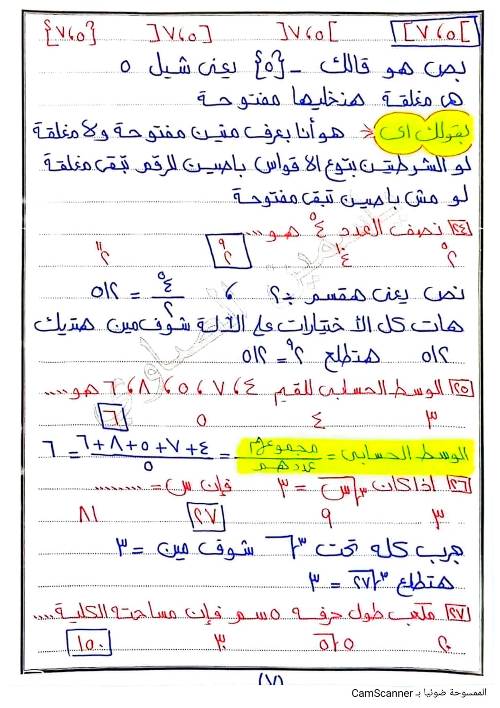 ]٥،٧]    ]٥،٧[    [٥،٧[    {٥،٧}
بص هو قالك - {٥} يعنى شيل ٥
هى مغلقة هنخليها مفتوحة
بقولك اى → هو أنا بعرف منين مفتوحة ولا مغلقة
لو الشرطتين بتوع الأقواس باصين للرقم تبقى مغلقة
لو مش باصين تبقى مفتوحة
(٢٤) نصف العدد ٤^٥ هو...
٢^٥    ٤^١٠    ٢^٩    ٢^١١
نص يعنى هقسم ÷ ٢ ، ٤^٥/٢ = ٥١٢
هات كل الاختيارات على الآلة شوف مين هتديك
٥١٢ هتطلع ٢^٩ = ٥١٢
(٢٥) الوسط الحسابى للقيم ٤، ٧، ٥، ٨، ٦ هو....
٣    ٤    ٥    ٦
الوسط الحسابى = مجموعهم/عددهم = ٤+٧+٥+٨+٦/٥ = ٦
(٢٦) اذا كان ∛س = ٣ فإن س = ........
٣    ٩    ٢٧    ٨١
جرب كله تحت ∛ شوف مين = ٣
هتطلع ∛٢٧ = ٣
(٢٧) مكعب طول حرفه ٥ سم فإن مساحته الكلية....
٣٠    ١٥٠
(٧)
الممسوحة ضوئيا بـ CamScanner